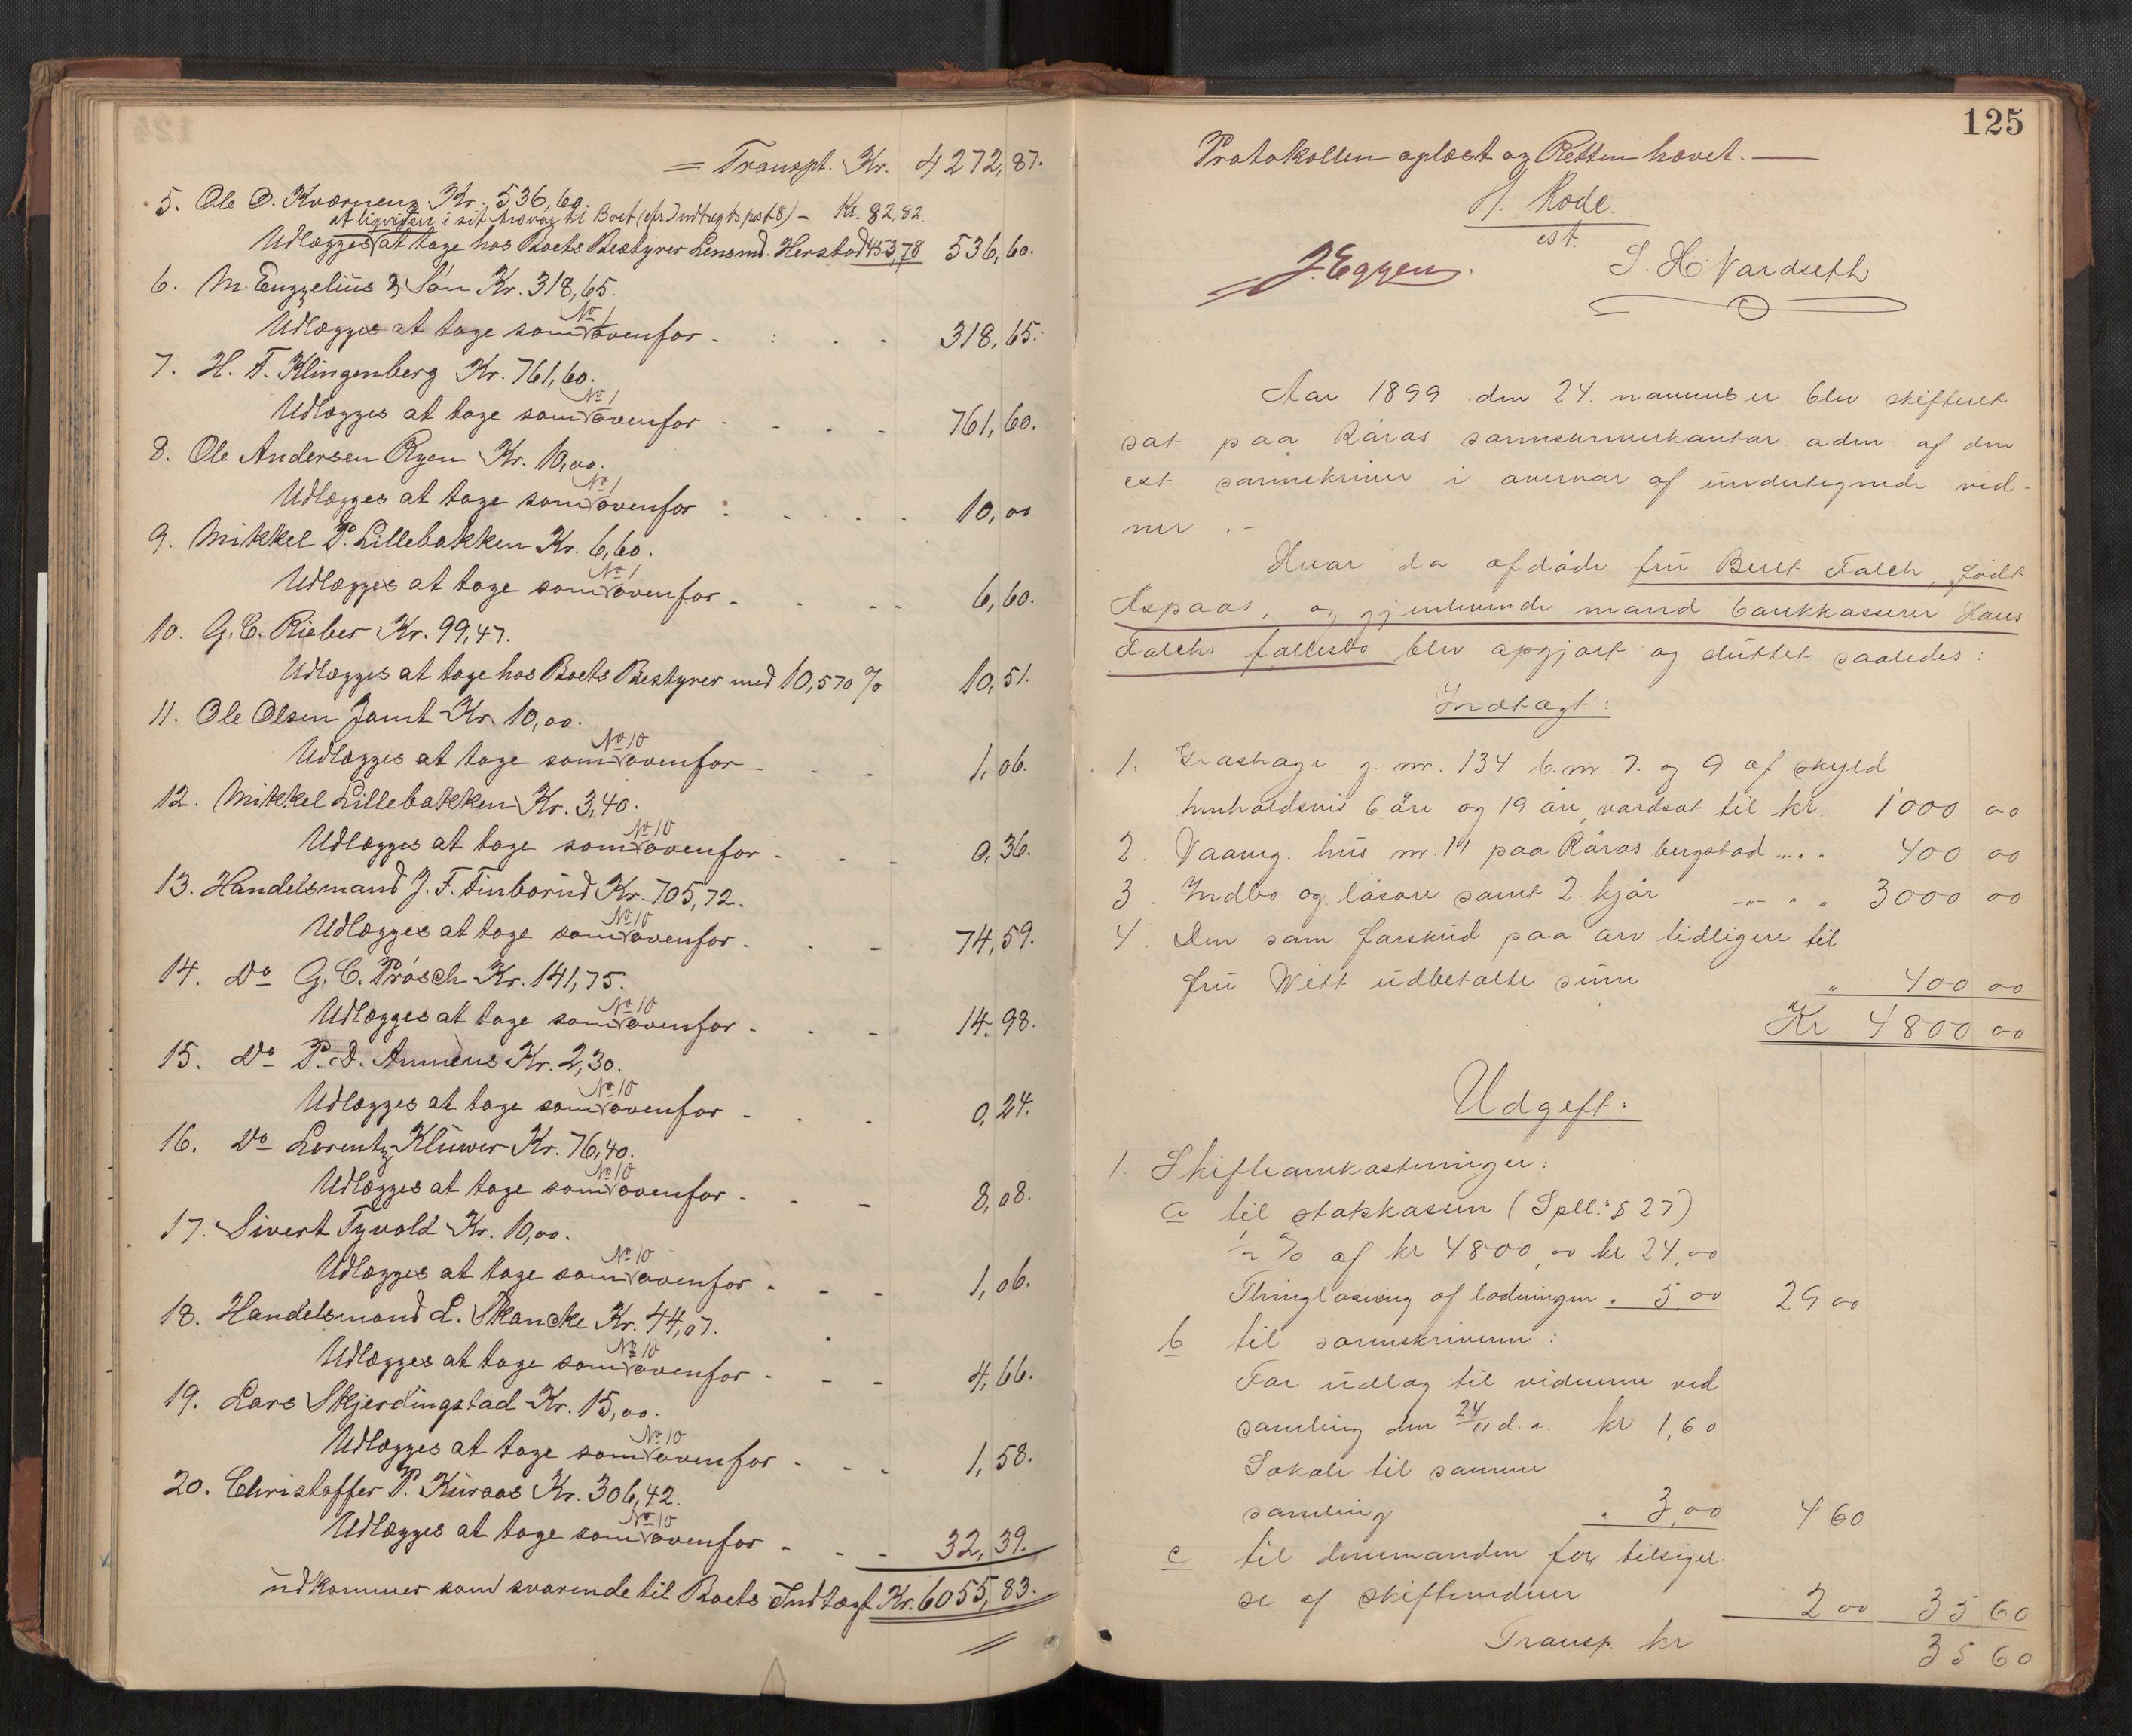 = Transpt. Kr. 4272,87.
5. Ole O. Kværneng Kr. 536,60.
at liqvidere i sit Ansvar til Boet (cfr. Indtægts post 8) – Kr. 82,82.
Udlægges at tage hos Boets Bestyrer Lensmd. Herstad 453,78 536,60.
6. M. Engzelius & Søn Kr. 318,65.
No 1
Udlægges at tage som ovenfor - 318,65.
7. H. F. Klingenberg Kr. 761,60.
No 1
Udlægges at tage som ovenfor - 761,60.
8. Ole Andersen Ryen Kr. 10,00.
No 1
Udlægges at tage som ovenfor 10,00
9. Mikkel P. Lillebakken Kr. 6,60.
No 1
Udlægges at tage som ovenfor - 6,60.
10. G. C. Rieber Kr. 99,47.
Udlægges at tage hos Boets Bestyrer med 10,570 % 10,51.
11. Ole Olsen Jamt Kr. 10,00.
No 10
Udlægges at tage som ovenfor - 1,06.
12. Mikkel Lillebakken Kr. 3,40.
No 10
Udlægges at tage som ovenfor - 0,36.
13. Handelsmand J. F. Finborud Kr. 705,72.
No 10
Udlægges at tage som ovenfor - 74,59.
14. Do G. C. Prøsch Kr. 141,75.
No 10
Udlægges at tage som ovenfor - 14,98.
15. Do P. D. Aunæus Kr. 2,30.
No 10
Udlægges at tage som ovenfor - 0,24.
16. Do Lorentz Klüwer Kr. 76,40.
No 10
Udlægges at tage som ovenfor - 8,08.
17. Sivert Tyvold Kr. 10,00.
No 10
Udlægges at tage som ovenfor - 1,06.
18. Handelsmand L. Skancke Kr. 44,07.
No 10
Udlægges at tage som ovenfor - 4,66.
19. Lars Skjerdingstad Kr. 15,00.
No 10
Udlægges at tage som ovenfor - 1,58.
20. Christoffer P. Kuraas Kr. 306,42.
No 10
Udlægges at tage som ovenfor - 32,39.
udkommer som svarende til Boets Indtægt Kr. 6055,83.
125
Protokollen oplæst og Retten hævet. —
H. Rode
cst.
J. Eggen. S. H. Vardseth
Aar 1899 den 24. november blev skifteret
sat paa Røros sorenskriverkontor adm. af den
cst. sorenskriver i overvær af undertegnede vid-
ner. -
Hvor da afdøde fru Beret Falch, født
Aspaas, og gjenlevende mand bankkasserer Hans
Falchs fællesbo blev opgjort og sluttet saaledes:
Indtægt:
1. Græshage g. nr. 134 b. nr. 7. og 9 af skyld
henholdsvis 6 øre og 19 øre, værdsat til kr. 1000 00
2. Vaanig. hus nr. 11 paa Røros bergstad 400 00
3. Indbo og løsøre samt 2 kjør 3000 00
4. Den som forskud paa arv tidligere til
fru Witt udbetalte sum " 400 00
Kr 4800 00
Udgift:
1. Skifteomkostninger:
a til statskassen (Spll: § 27)
½ % af kr 4800,00 kr 24,00
Thinglæsning af lodningen . 5,00 29 00
b til sorenskriveren:
For udlæg til vidnerne ved
samling den 24/11 d. a. kr 1,60
Lokale til samme
samling . 3,00 4 60
c til lensmanden for tilsigel-
se af skiftevidner 2 00 35 60
Transp. kr 35 60